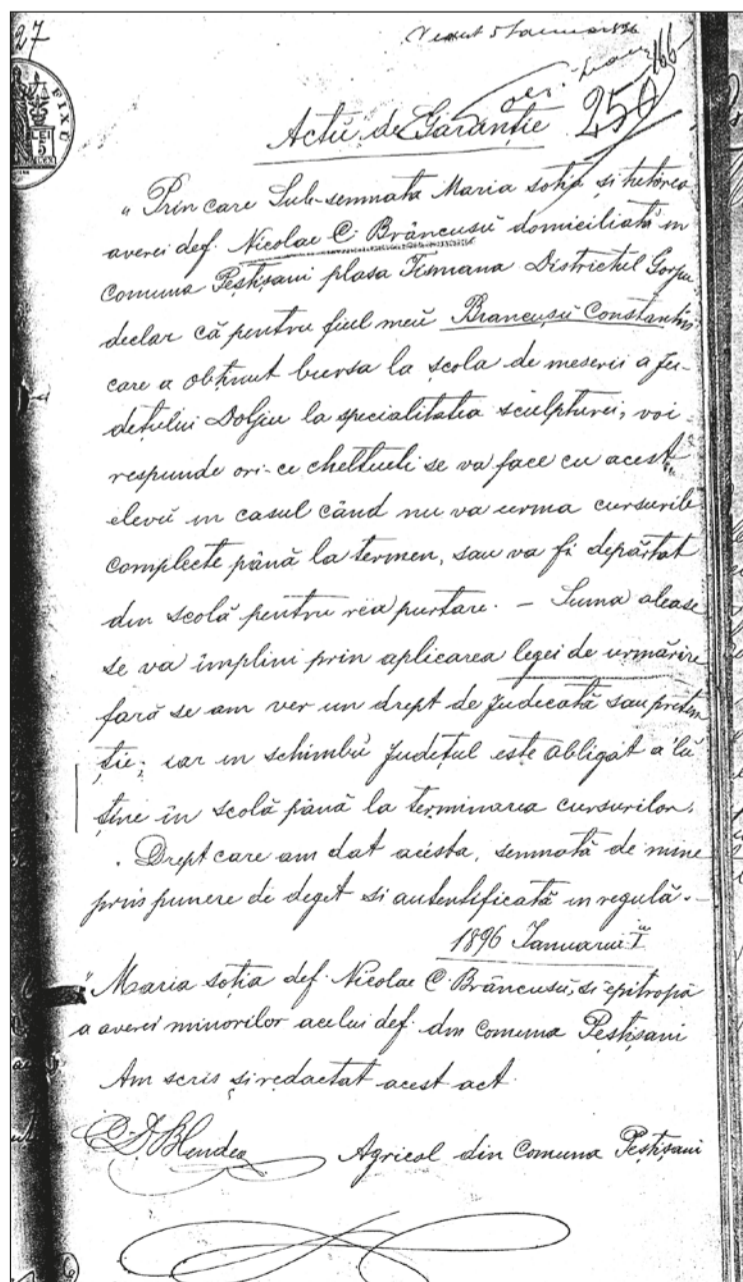 27
Venit 5 Ianuar 1896
166
250
FIXU
LEI
5
Actŭ de Garanție
„Prin care Sub-semnata Maria soția și tutórea
averei def. Nicolae C. Brâncusŭ domiciliată in
comuna Peștișani plasa Tismana Districtul Gorjiu
declar că pentru fiul meŭ Brancușŭ Constantin
care a obținut bursa la școla de meserii a ju-
dețului Doljiu la specialitatea sculpturei, voi
respunde ori-ce cheltueli se va face cu acest
elevŭ in casul când nu va urma cursurile
complecte până la termen, sau va fi depărtat
din scolă pentru rea purtare. – Suma aleasă
se va împlini prin aplicarea legei de urmărire
fară se am ver un drept de judecată sau preten
ție; iar in schimbŭ județul este obligat a'lŭ
ține in scolă până la terminarea cursurilor.
Drept care am dat acésta, semnată de mine
prin punere de deget si autentificată in regulă.-
1896 Ianuariu I
"Maria soția def. Nicolae C. Brâncusŭ, si epitropă
a averei minorilor acelui def. din comuna Peștișani
Am scris și redactat acest act
C. D. Blendea Agricol din Comuna Peștișani